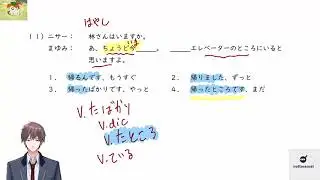 はやし
(11) ニサー： 林さんはいますか。
まゆみ： あ、ちょうど____、____エレベーターのところにいると
思いますよ。
1． 帰るんです、もうすぐ 2． 帰りました、ずっと
3． 帰ったばかりです、やっと 4． 帰ったところです、まだ
V.たばかり
V.dic
V.たところ
V.ている